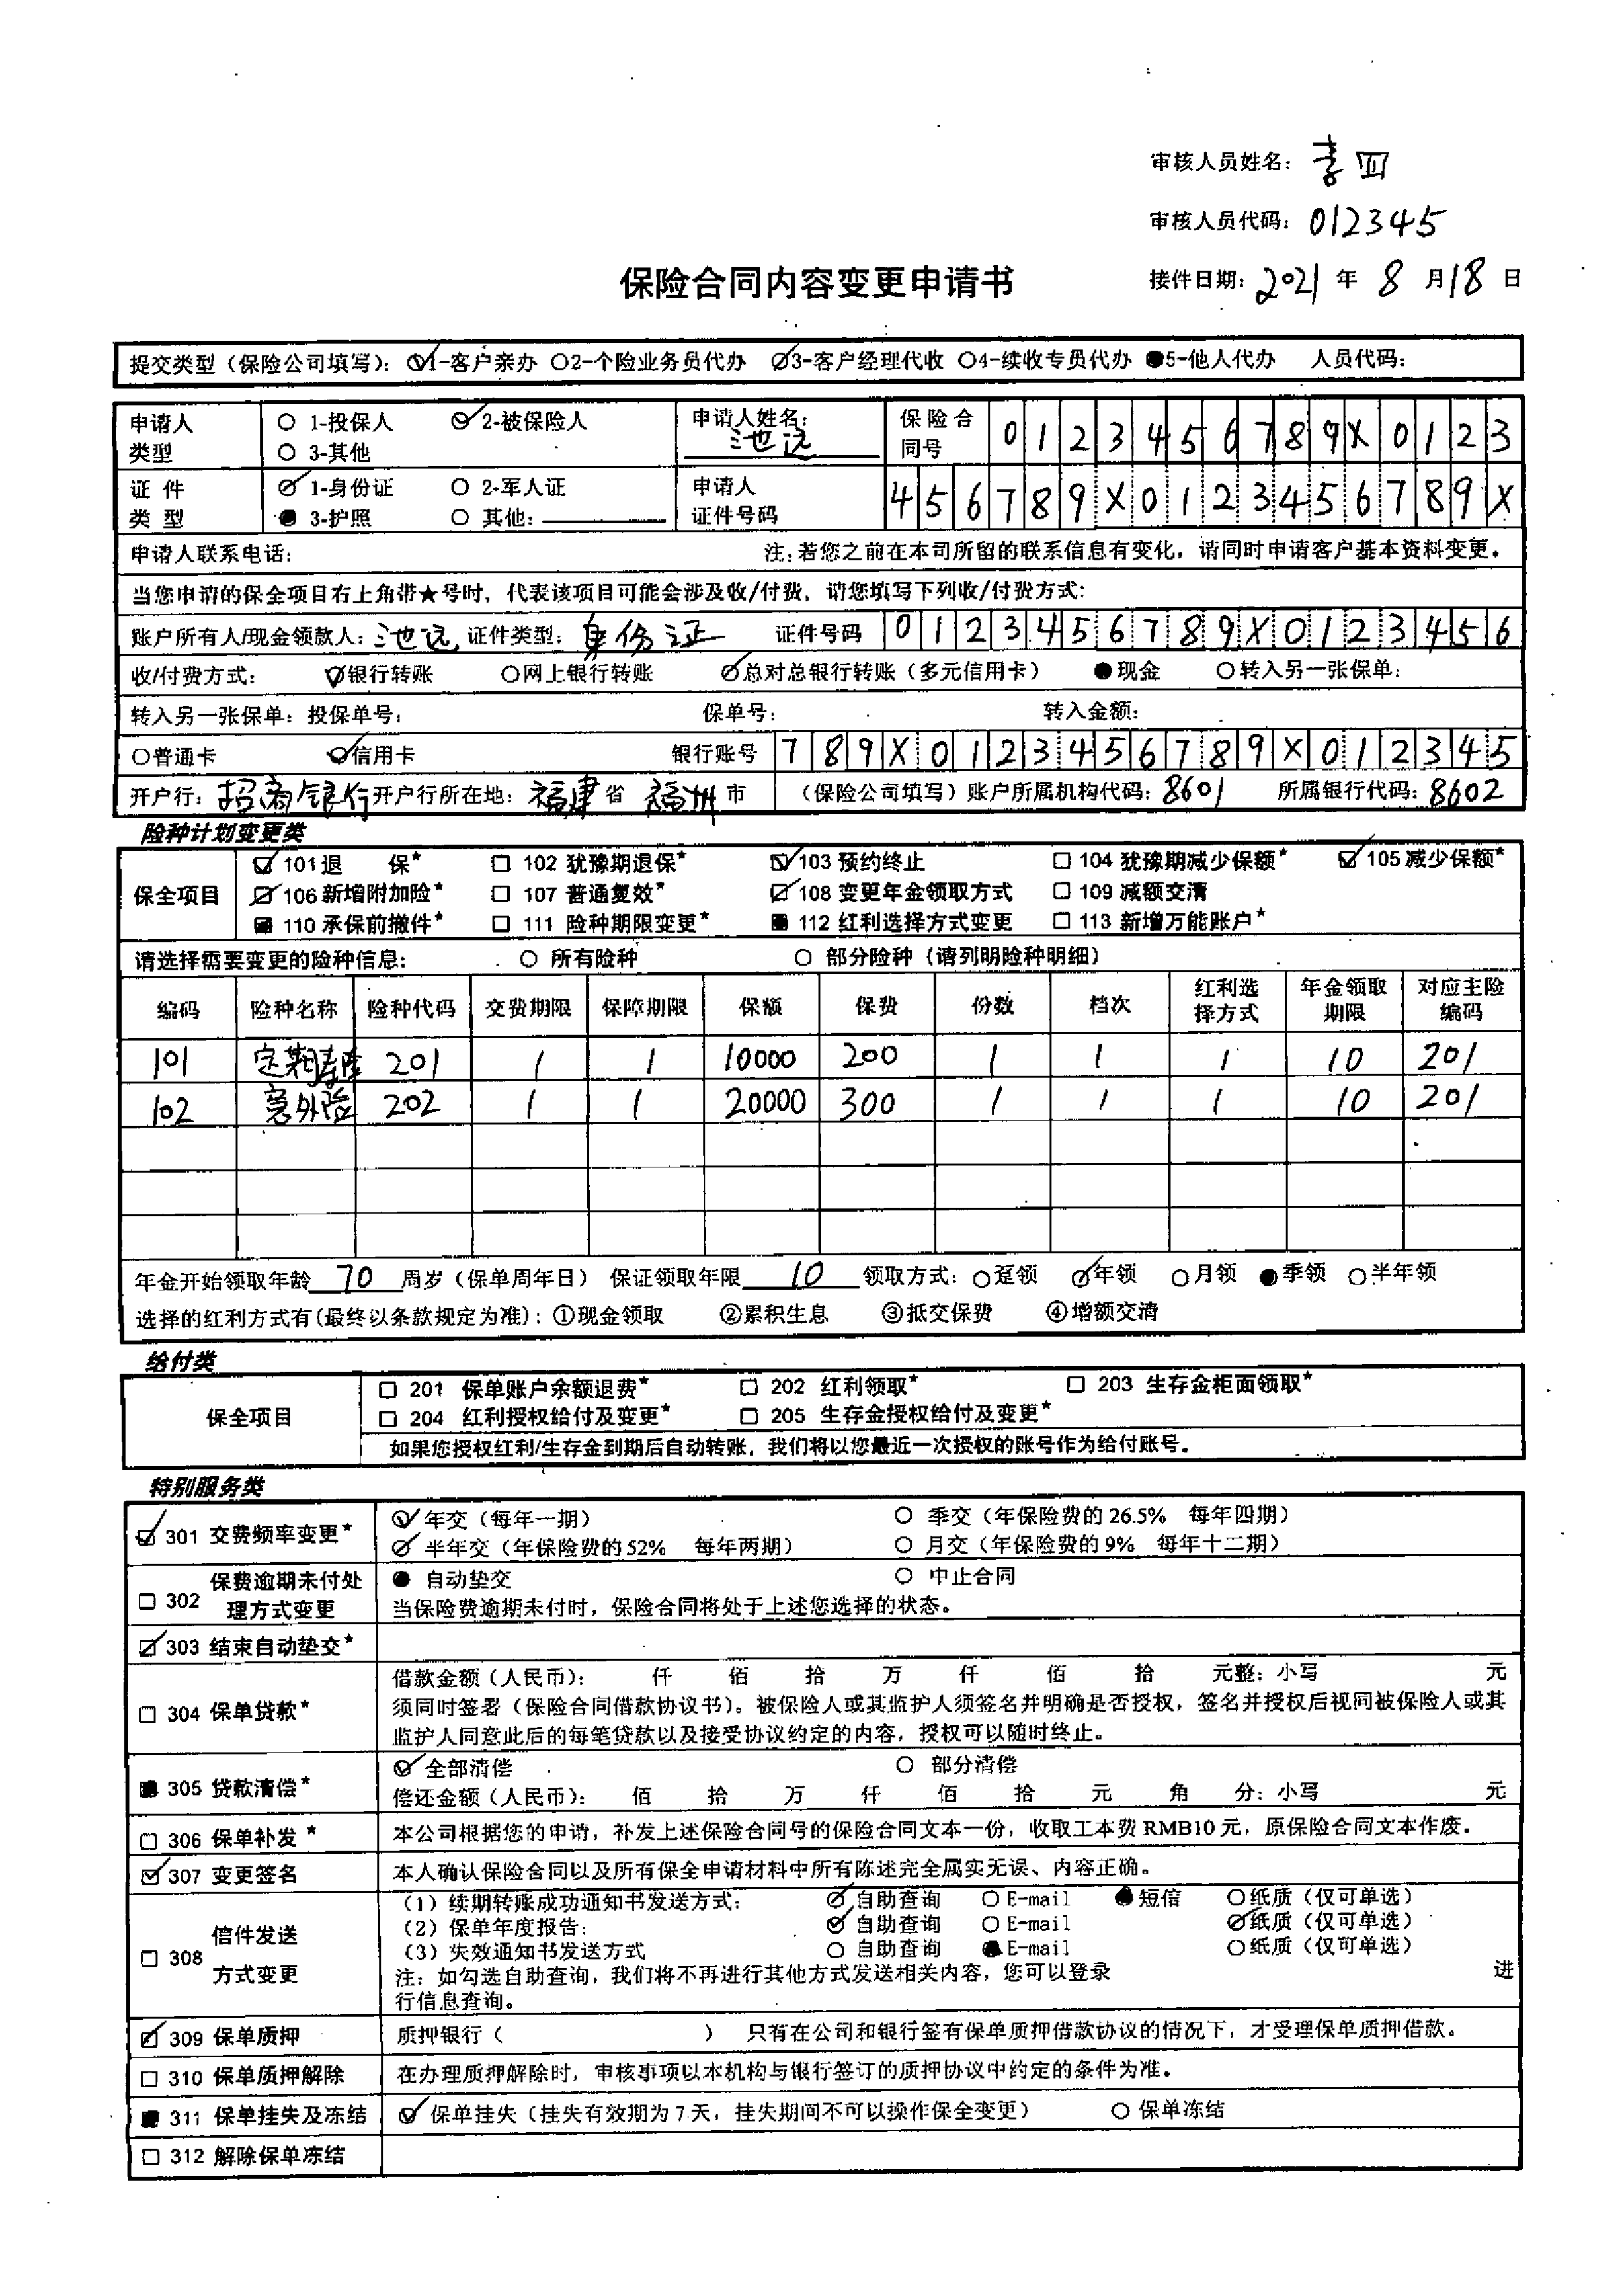 审核人员姓名：李四
审核人员代码：012345
保险合同内容变更申请书 接件日期：2021 年 8 月 18 日
提交类型（保险公司填写）：1-客户亲办 ○2-个险业务员代办 3-客户经理代收 ○4-续收专员代办 ●5-他人代办 人员代码：
申请人类型 ○ 1-投保人 2-被保险人 ○ 3-其他 申请人姓名：池远 保险合同号 0123456789X0123
证件类型 1-身份证 ○ 2-军人证 ● 3-护照 ○ 其他： 申请人证件号码 456789X0123456789X
申请人联系电话： 注：若您之前在本司所留的联系信息有变化，请同时申请客户基本资料变更。
当您申请的保全项目右上角带★号时，代表该项目可能会涉及收/付费，请您填写下列收/付费方式：
账户所有人/现金领款人：池远 证件类型：身份证 证件号码 0123456789X0123456
收/付费方式： 银行转账 ○网上银行转账 总对总银行转账（多元信用卡） ●现金 ○转入另一张保单：
转入另一张保单：投保单号： 保单号： 转入金额：
○普通卡 信用卡 银行账号 789X0123456789X012345
开户行：招商银行 开户行所在地：福建 省 福州 市 （保险公司填写）账户所属机构代码：8601 所属银行代码：8602
险种计划变更类
保全项目
☑ 101 退 保★ □ 102 犹豫期退保★ ☑ 103 预约终止 □ 104 犹豫期减少保额★ ☑ 105 减少保额★
☑ 106 新增附加险★ □ 107 普通复效★ ☑ 108 变更年金领取方式 □ 109 减额交清
■ 110 承保前撤件★ □ 111 险种期限变更★ ■ 112 红利选择方式变更 □ 113 新增万能账户★
请选择需要变更的险种信息： ○ 所有险种 ○ 部分险种（请列明险种明细）
编码 险种名称 险种代码 交费期限 保障期限 保额 保费 份数 档次 红利选择方式 年金领取期限 对应主险编码
101 定期寿险 201 1 1 10000 200 1 1 1 10 201
102 意外险 202 1 1 20000 300 1 1 1 10 201
年金开始领取年龄 70 周岁（保单周年日） 保证领取年限 10 领取方式：○趸领 年领 ○月领 ●季领 ○半年领
选择的红利方式有(最终以条款规定为准)：①现金领取 ②累积生息 ③抵交保费 ④增额交清
给付类
保全项目
□ 201 保单账户余额退费★ □ 202 红利领取★ □ 203 生存金柜面领取★
□ 204 红利授权给付及变更★ □ 205 生存金授权给付及变更★
如果您授权红利/生存金到期后自动转账，我们将以您最近一次授权的账号作为给付账号。
特别服务类
☑ 301 交费频率变更★ 年交（每年一期） ○ 季交（年保险费的 26.5% 每年四期）
半年交（年保险费的 52% 每年两期） ○ 月交（年保险费的 9% 每年十二期）
□ 302 保费逾期未付处理方式变更 ● 自动垫交 ○ 中止合同
当保险费逾期未付时，保险合同将处于上述您选择的状态。
☑ 303 结束自动垫交★
□ 304 保单贷款★ 借款金额（人民币）： 仟 佰 拾 万 仟 佰 拾 元整；小写 元
须同时签署（保险合同借款协议书）。被保险人或其监护人须签名并明确是否授权，签名并授权后视同被保险人或其
监护人同意此后的每笔贷款以及接受协议约定的内容，授权可以随时终止。
■ 305 贷款清偿★ 全部清偿 ○ 部分清偿
偿还金额（人民币）： 佰 拾 万 仟 佰 拾 元 角 分：小写 元
□ 306 保单补发★ 本公司根据您的申请，补发上述保险合同号的保险合同文本一份，收取工本费 RMB10 元，原保险合同文本作废。
☑ 307 变更签名 本人确认保险合同以及所有保全申请材料中所有陈述完全属实无误、内容正确。
□ 308 信件发送方式变更
（1）续期转账成功通知书发送方式： 自助查询 ○ E-mail ●短信 ○纸质（仅可单选）
（2）保单年度报告： 自助查询 ○ E-mail 纸质（仅可单选）
（3）失效通知书发送方式 ○ 自助查询 ●E-mail ○纸质（仅可单选）
注：如勾选自助查询，我们将不再进行其他方式发送相关内容，您可以登录 进
行信息查询。
☑ 309 保单质押 质押银行（ ） 只有在公司和银行签有保单质押借款协议的情况下，才受理保单质押借款。
□ 310 保单质押解除 在办理质押解除时，审核事项以本机构与银行签订的质押协议中约定的条件为准。
■ 311 保单挂失及冻结 保单挂失（挂失有效期为 7 天，挂失期间不可以操作保全变更） ○ 保单冻结
□ 312 解除保单冻结